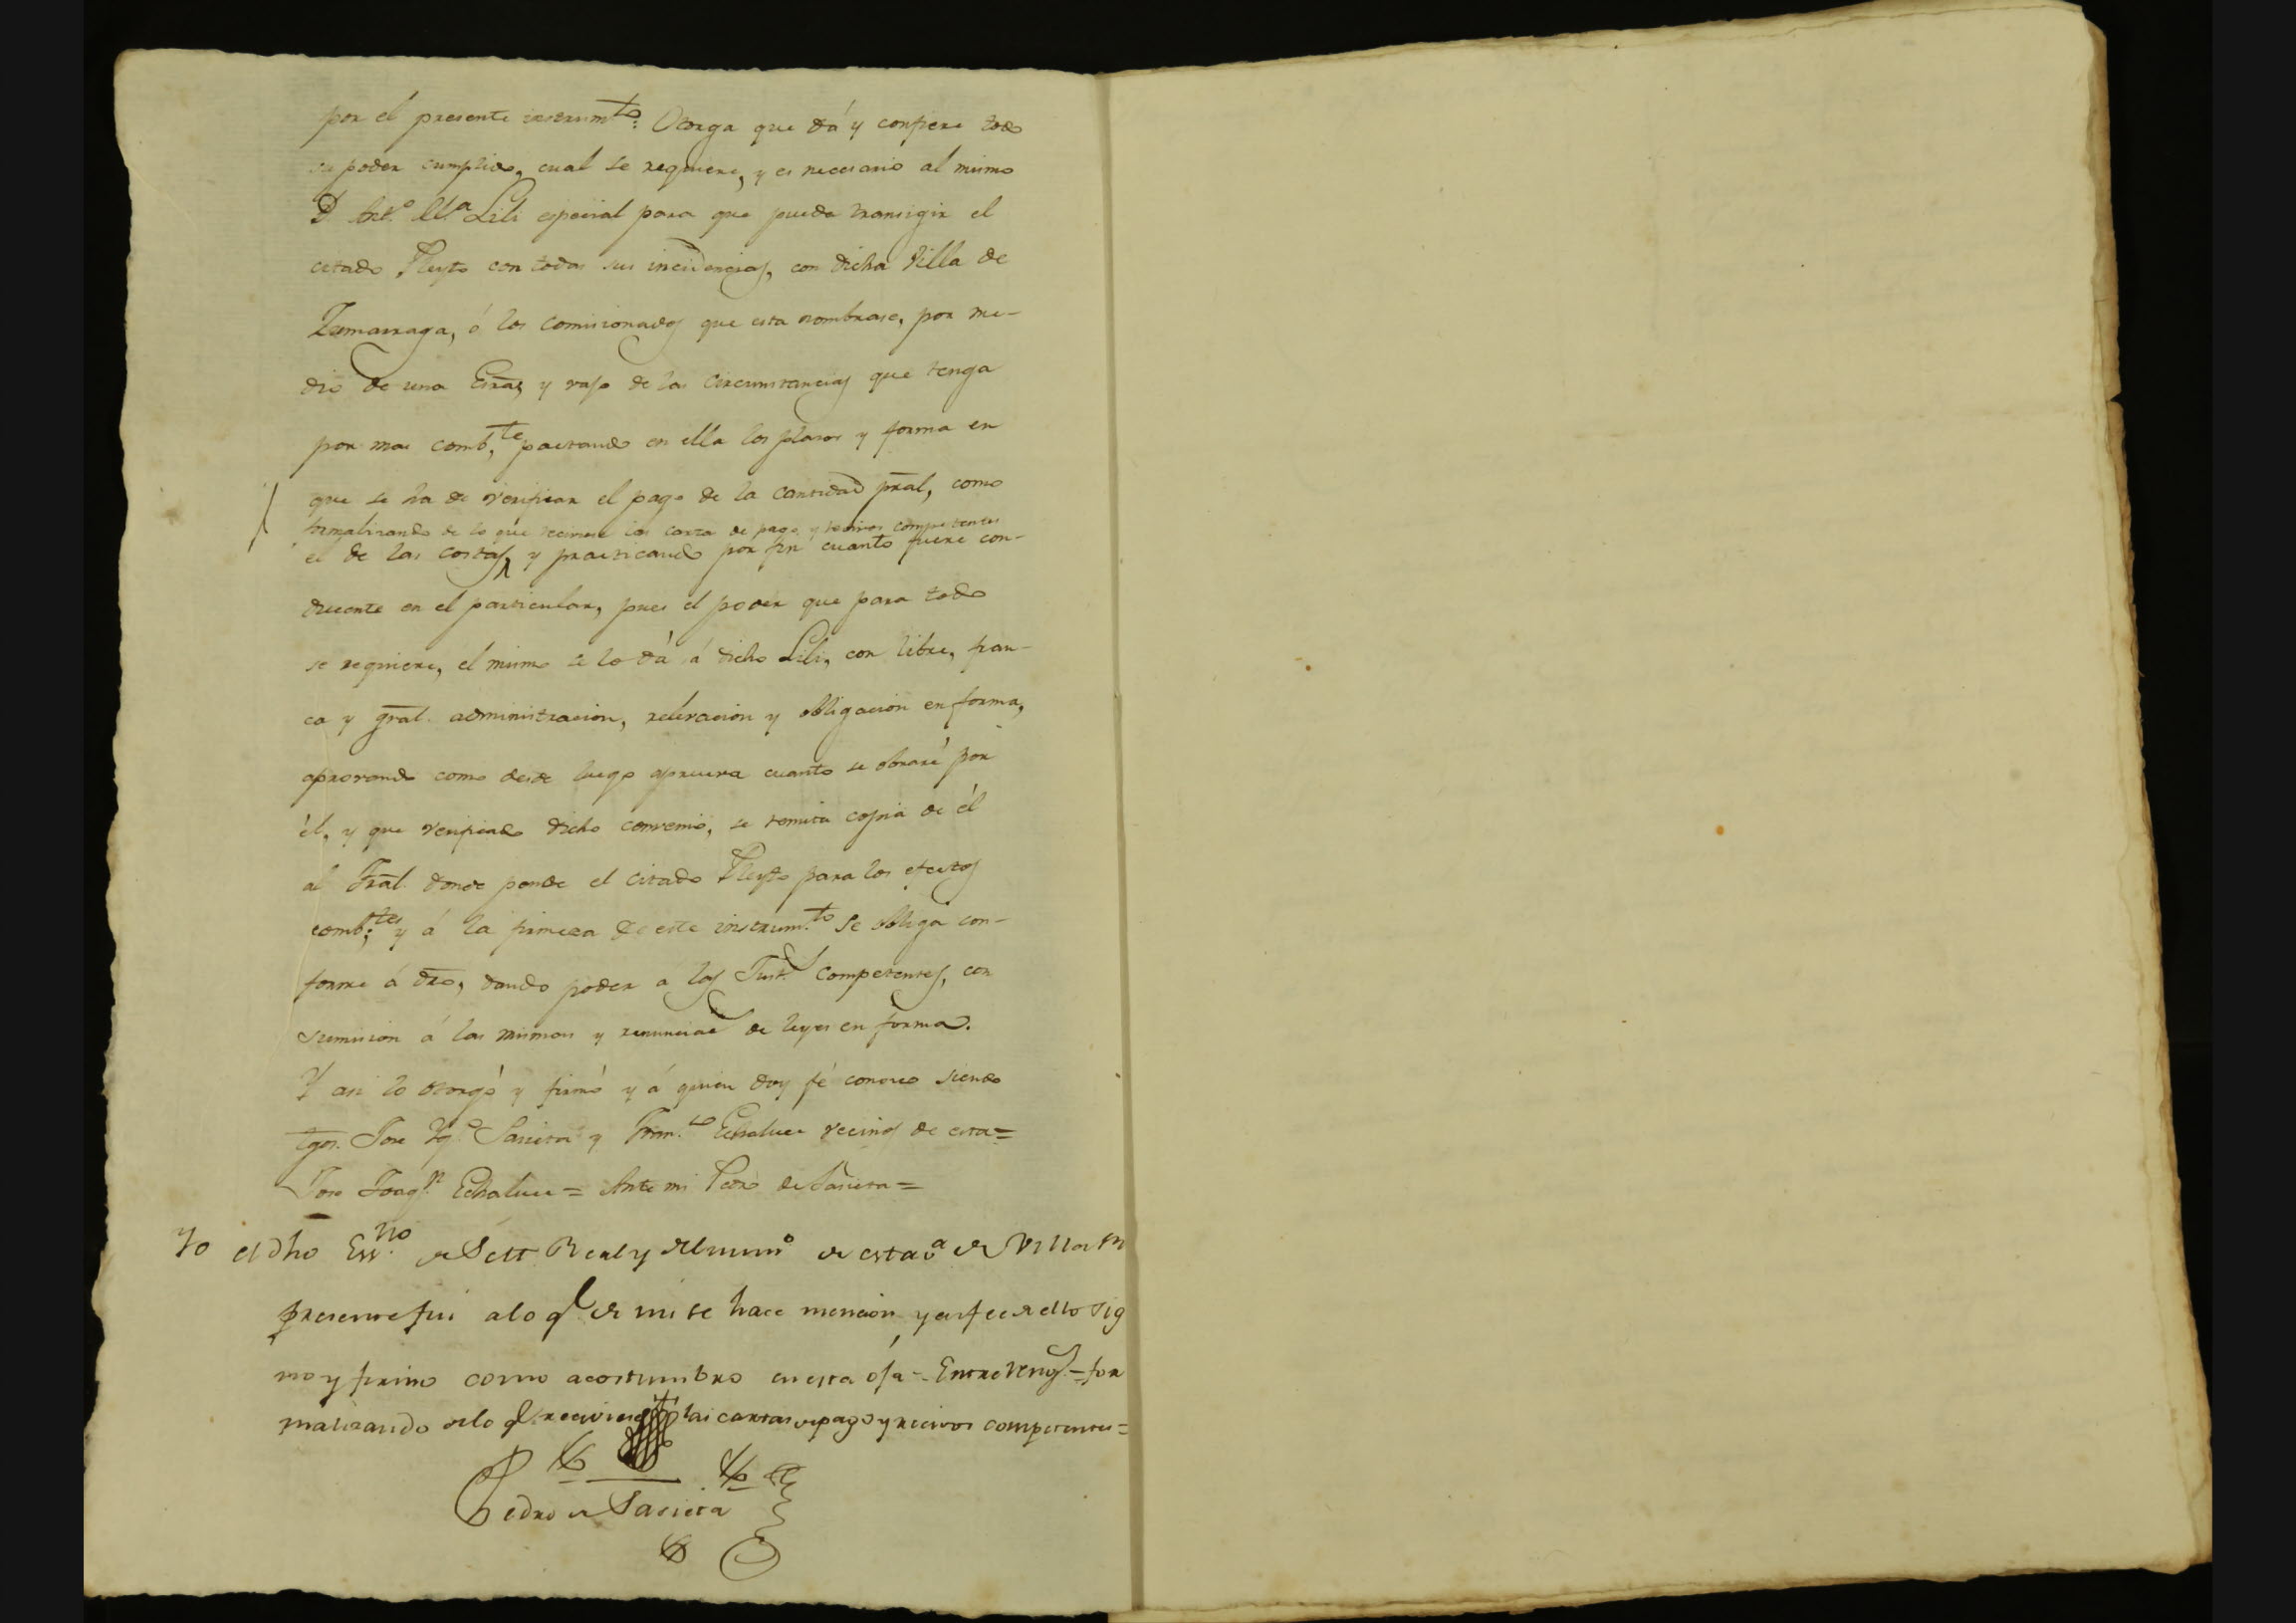 por el presente instrum.to Otorga que dá y confiere todo
su poder cumplido, cual se requiere, y es necesario al mismo
D. Ant.o M.a Lili especial para que pueda transigir el
citado Pleyto con todas sus incidencias, con dicha Villa de
Zumarraga, ó los comisionados que esta nombrase, por me-
dio de una Esra, y vajo de las circunstancias que tenga
por mas comb.te pactando en ella los plasos y forma en
que se ha de verificar el pago de la cantidad pral, como
formalizando de lo que reciviese las cartas de pago y recivos competentes
el de las costas, y practicando por fin cuanto fuere con-
ducente en el particular, pues el poder que para todo
se requiere, el mismo se lo dá á dicho Lili, con libre, fran-
ca y gral. administracion, relevacion y obligacion en forma,
aprovando como desde luego aprueva cuanto se obrare por
él, y que verificado dicho convenio, se remita copia de él
al Tral. donde pende el citado Pleyto para los efectos
comb.tes y á la firmeza de este instrum.to se obliga con-
forme á dro, dando poder a los Just.s competentes, con
sumision á las mismas y renunciac.n de leyes en forma.
Y asi lo otorgó y firmó y á quien doy fé conozco siendo
tgos. Jose Ig.o Sasieta y Fran.co Echaluce vecinos de esta=
Jose Joaq.n Echaluce= Ante mi Pedro de Sasieta=
Yo el dho Ess.no de S M Real y del num.o de esta v.a de Villar
presente fui a lo q.l de mi se hace mencion, y en fee de ello sig
no y firmo como acostumbro en esta oja - Entrerreng.s = for
malizando de lo q. reciviese las cartas de pago y recivos competentes=
Pedro de Sasieta